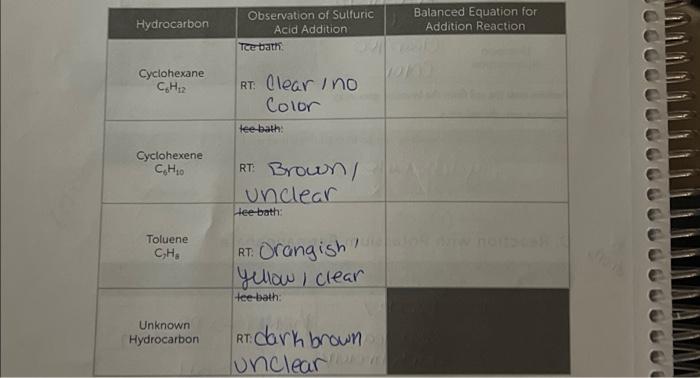 Hydrocarbon
Observation of Sulfuric
Acid Addition
Balanced Equation for
Addition Reaction
Cyclohexane
C₆H₁₂
Ice bath:
RT: Clear / no
Color
Cyclohexene
C₆H₁₀
Ice bath:
RT: Brown /
unclear
Toluene
C₇H₈
Ice bath:
RT: Orangish /
yellow / clear
Unknown
Hydrocarbon
Ice bath:
RT: dark brown
unclear